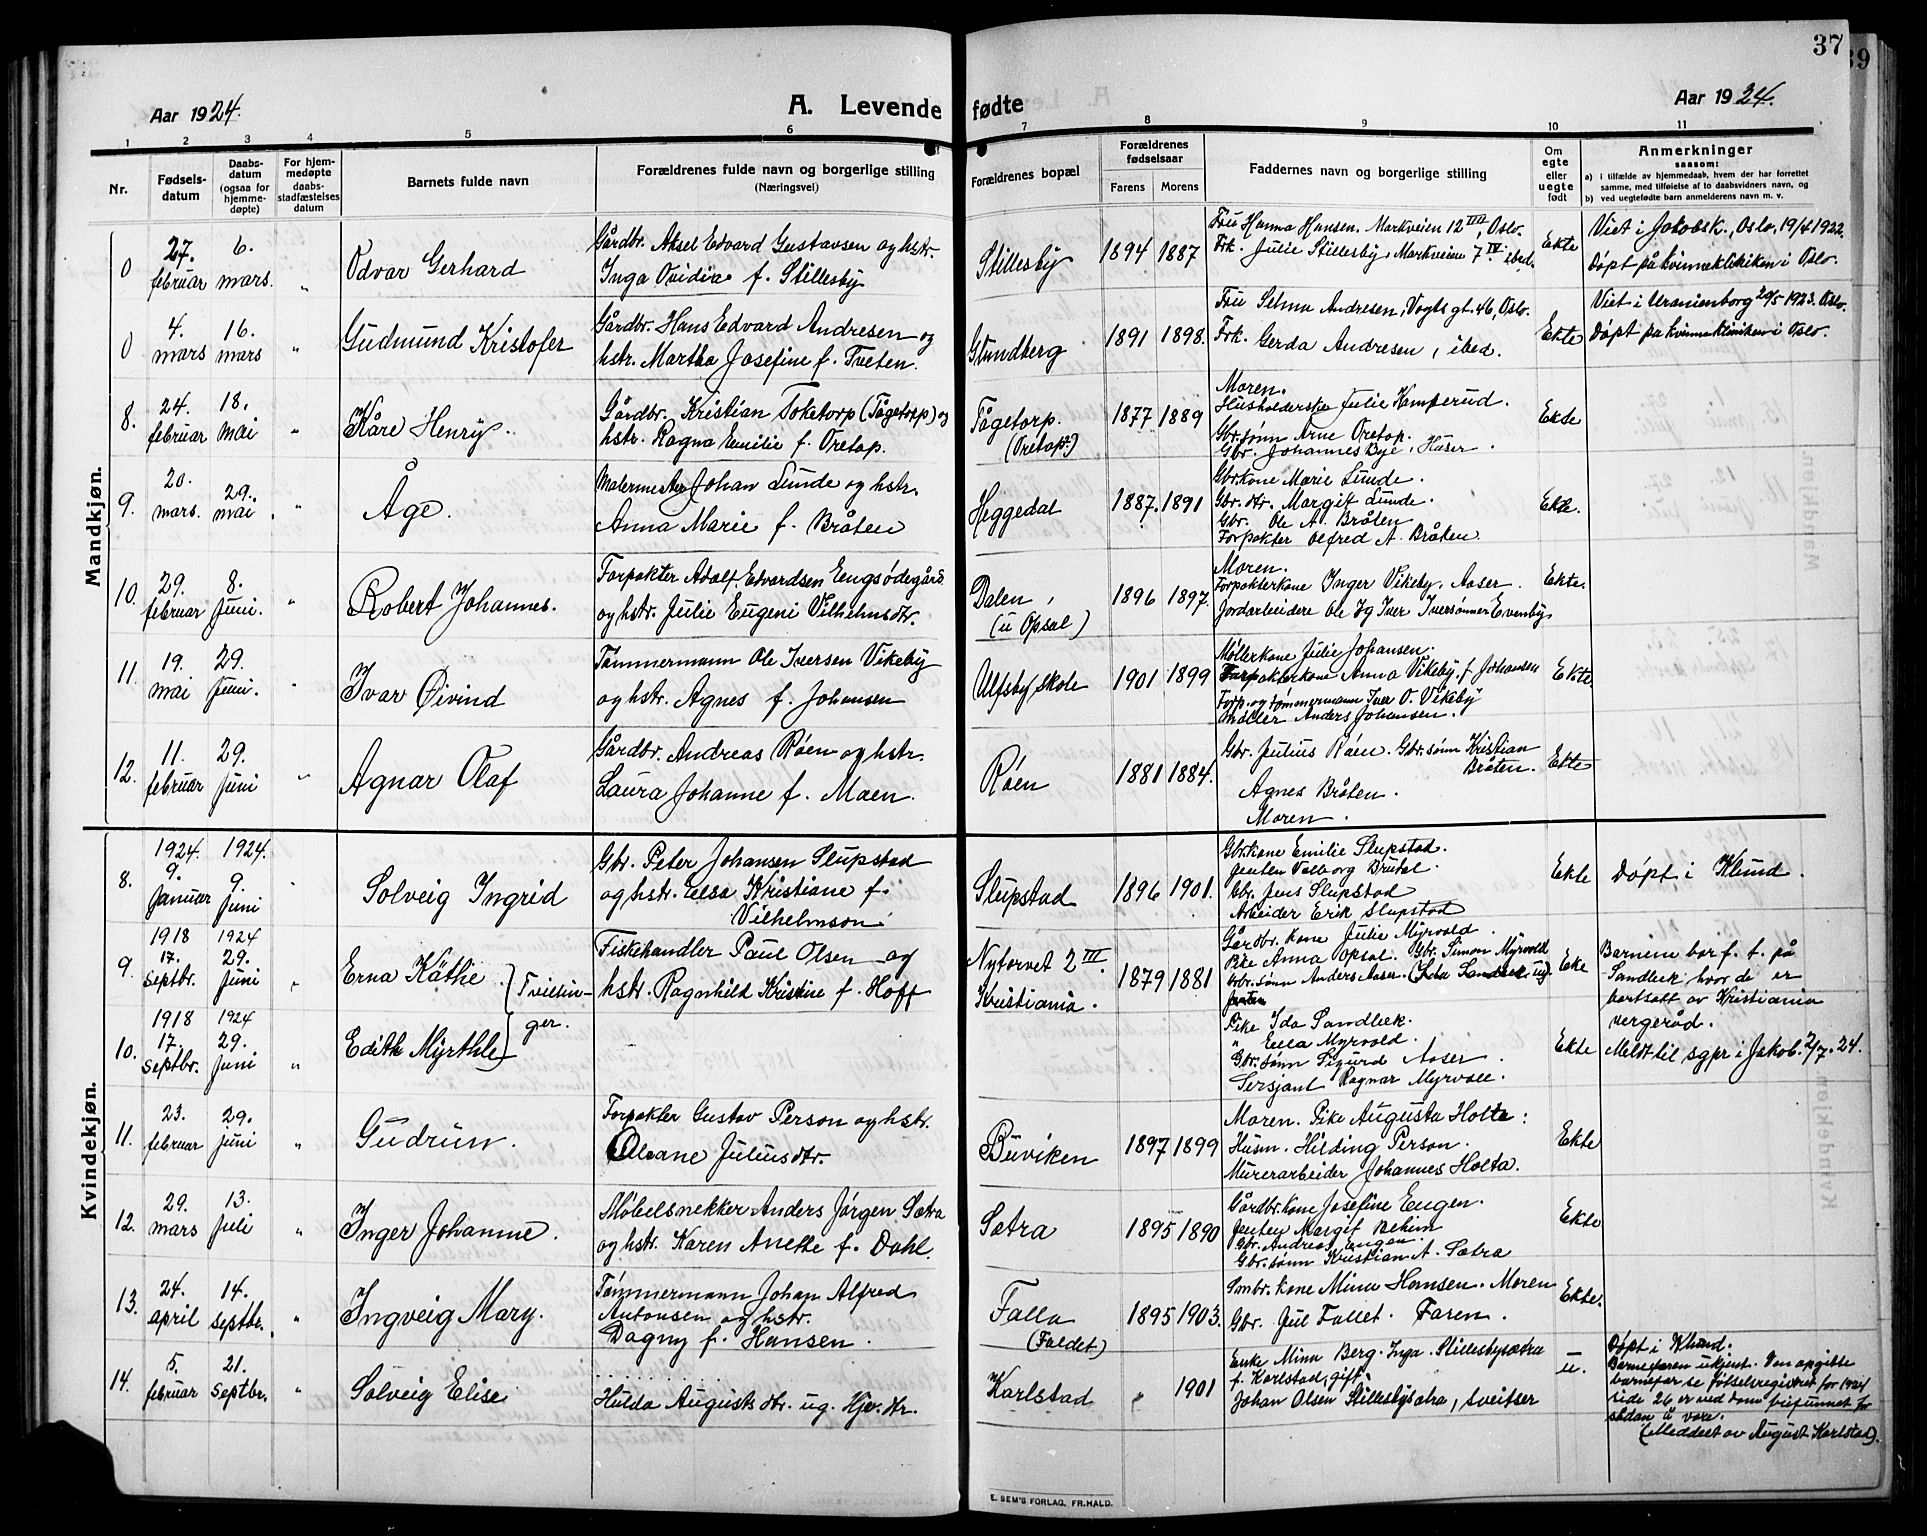 37
39
Aar 1924.
A. Levende fødte
Aar 1924.
1 2 3 4 5 6 7 8 9 10 11
Nr.
Fødsels-
datum
Daabs-
datum
(ogsaa for
hjemme-
døpte)
For hjem-
medøpte
daabs-
stadfæstelses
datum
Barnets fulde navn
Forældrenes fulde navn og borgerlige stilling
(Næringsvei)
Forældrenes bopæl
Forældrenes
fødselsaar
Farens Morens
Faddernes navn og borgerlige stilling
Om
egte
eller
uegte
født
Anmerkninger
saasom:
a) i tilfælde av hjemmedaab, hvem der har forrettet
samme, med tilføielse af to daabsvidners navn, og
b) ved uegtefødte barn anmelderens navn m. v.
Mandkjøn.
0
27.
februar
6.
mars.
"
Odvar Gerhard
Gårdbr. Aksel Edvard Gustavsen og hstr.
Inga Ovidia f. Stillesby
Stillesby
1894 1887
Fru Hanna Hansen, Markveien 12 III, Oslo.
Frk. Julie Stillesby, Markveien 7 IV ibed.
Ekte
Viet i Jakobsk., Oslo, 19/4 1922.
Døpt på kvinneklikiken i Oslo.
0
4.
mars
16.
mars
"
Gudmund Kristofer
Gårdbr. Hans Edvard Andresen og
hstr. Martha Josefine f. Tveten.
Grundberg
1891 1898.
Fru Selma Andresen, Vogts gt. 46, Oslo.
Frk. Gerda Andresen, ibed.
Ekte
Viet i Uranienborg 20/5 1923. Oslo.
Døpt på kvinneklinikken i Oslo.
8.
24.
februar
18.
mai
"
Kåre Henry.
Gårdbr. Kristian Toketorp (Tågetorp) og
hstr. Ragna Emilie f. Oretop.
Tågetorp.
(Oretop.)
1877 1889
Moren.
Husholderske Julie Kamperud.
Gbr.sønn Arne Oretop.
Gbr. Johannes Bye, Huser.
Ekte
9.
20.
mars.
29.
mai.
"
Åge.
Malermester Johan Lunde og hstr.
Anna Marie f. Bråten
Heggedal
1887. 1891
Gbr.kone Marie Lunde.
Gbr. dtr. Margit Lunde.
Gbr. Ole A. Bråten
Forpakter Olfred A. Bråten.
Ekte.
10.
29.
februar
8.
Juni.
"
Robert Johannes.
Forpakter Adolf Edvardsen Engsødegård
og hstr. Julie Eugeni Vilhelmsdtr.
Dalen,
(u Opsal)
1896 1897.
Moren.
Forpakterkone Inger Vikeby, Aaser.
Jordarbeidere Ole og Iver Iversønner Evenby,
Ekte.
11.
19.
mai
29.
Juni.
"
Ivar Øivind
Tømmermann Ole Iversen Vikeby
og hstr. Agnes f. Johansen
Ulfsby, skole
1901 1899
Møllerkone Julie Johansen.
Forpakterkone Anna Vikeby, f Johansen
Forp. og tømmermann Iver O. Vikeby
Møller Anders Johansen.
Ekte.
12.
11.
februar
29.
Juni
"
Agnar Olaf
Gårdbr. Andreas Røen og hstr.
Laura Johanne f. Moen.
Røen
1881 1884.
Gbr. Julius Røen. Gbr.sønn Kristian
Bråten.
Agnes Bråten.
Moren.
Ekte
Kvindekjøn.
8.
1924.
9.
Januar
1924.
9.
Juni
Solveig Ingrid
Gbr. Peter Johansen Slupstad
og hstr. Elsa Kristiane f.
Vilhelmson
Slupstad
1896 1901.
Gbr.kone Emilie Slupstad.
Jenten Valborg Brutal.
Gbr. Jens Slupstad
Arbeider Erik Slupstad
Ekte
Døpt i Klund.
9.
1918
17.
septbr.
1924
29.
Juni
"
Erna Käthe
Fiskehandler Paul Olsen og
hstr. Ragnhild Kristine f. Hoff
Tvillin-
ger.
Nytorvet 2 III.
Kristiania.
1879 1881
Gårdbr. kone Julie Myrvold.
Pike Anna Opsal. Gbr. Simon Myrvold
Gbr. sønn Anders Aaser.
Eke
Barnene bor f. t. på
Sandbek hvor de er
bortsatt av Kristiania
vergeråd.
10.
1918
17.
septbr.
1924
29.
Juni
"
Edith Myrthle
Pike Ida Sandbæk.
" Ella Myrvold.
Gbr. sønn Sigurd Aaser.
Sersjant Ragnar Myrvold.
Ekte
Meldt til sgpr i Jakob. 2/7. 24.
11.
23.
februar
29.
juni
"
Gudrun.
Forpakter Gustav Person og hstr.
Oleane Juliusdtr.
Buviken
1897 1899
Moren. Pike Augusta Holta:
Husm. Hilding Person.
Murerarbeider Johannes Holta.
Ekte
12.
29.
mars
13.
Juli
"
Inger Johanne.
Møbelsnekker Anders Jørgen Sætra
og hstr. Karen Anette f. Dahl.
Sætra
1895 1890
Gårdbr.kone Josefine Engen.
Jenten Margit Behim
Gbr. Andreas Engen.
Gbr. sønn Kristian A. Sætra
Ekte
13.
24.
april
14.
septbr.
"
Ingveig Mary.
Tømmermann Johan Alfred
Antonsen og hstr.
Dagny f. Hansen.
Falla
(Faldet)
1895 1903.
Smbr. kone Mina Hansen. Moren
Gbr. Jul Fallet. Faren.
Ekte.
14.
5.
februar
21.
septbr.
"
Solveig Elise
Hulda Augusts dtr. ug. Hjv. dtr.
Karlstad
" 1901
Enke Mina Berg. Inga Stillesbysætra
f. Karlstad, gift.
Johan Olsen Stillesbysætra, sveitser
u.
Døpt i Klund.
Barnefaren ukjent. Den opgitte
barnefar se fødselsregistret for 1921
side 26 er ved dom frifunnet for
sådan å være.
(Meddelt av August Karlstad).
E. SEM'S FORLAG, FR.HALD.